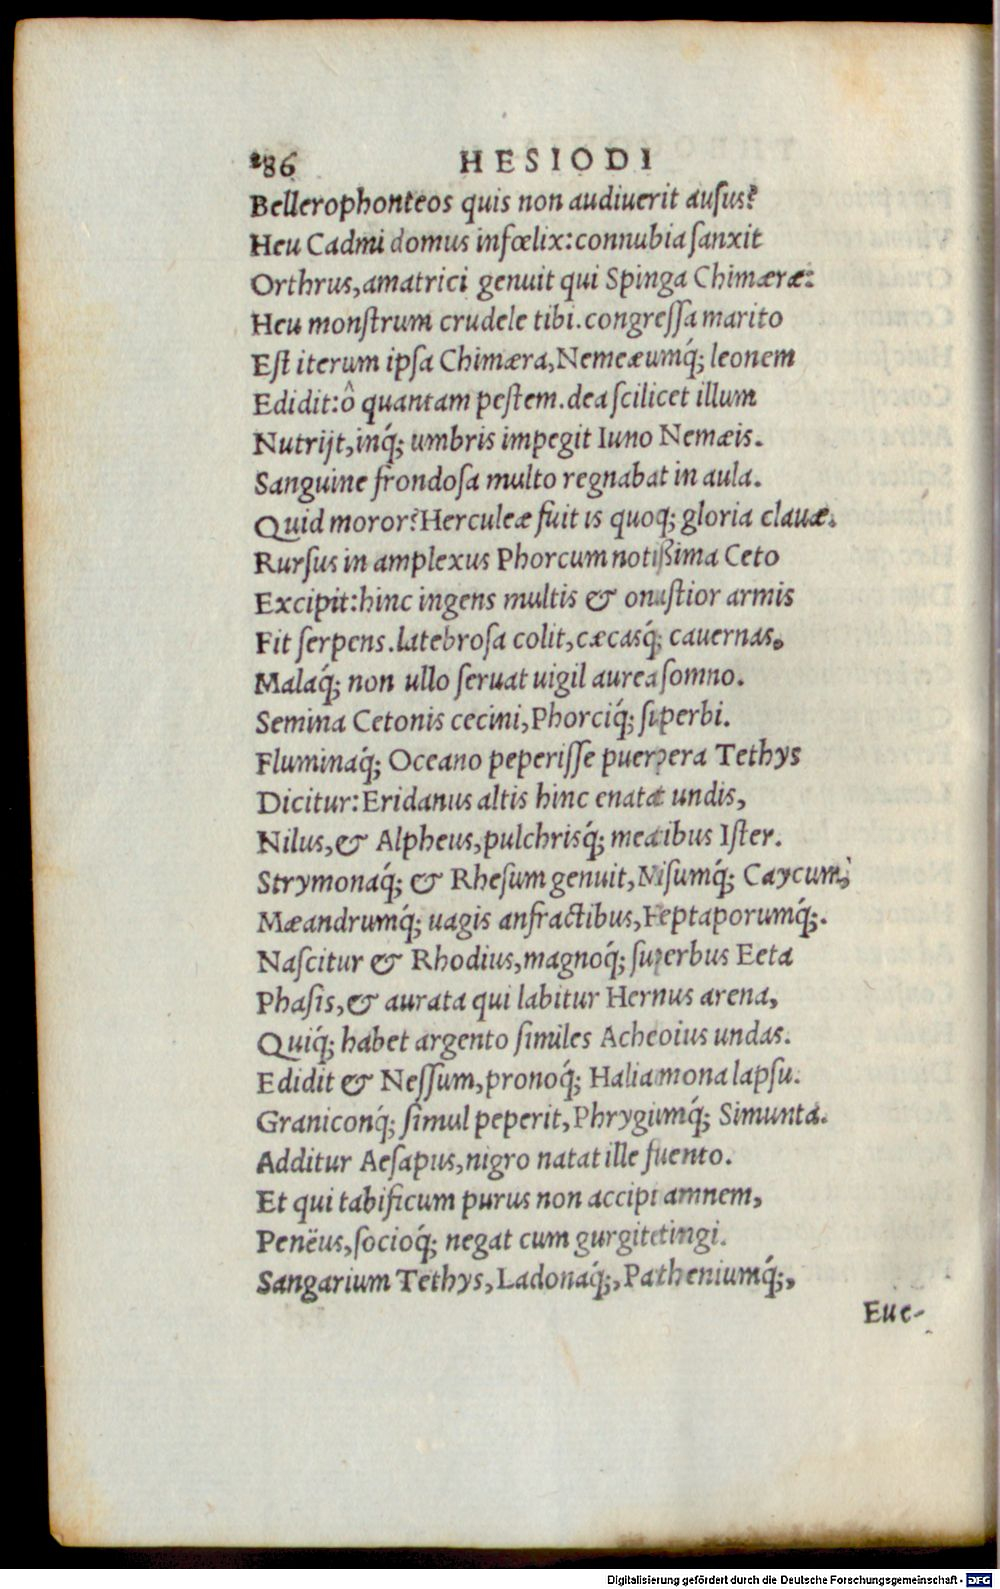 286 HESIODI
Bellerophonteos quis non audiuerit ausus?
Heu Cadmi domus infœlix: connubia ſanxit
Orthrus, amatrici genuit qui Spinga Chimæræ:
Heu monſtrum crudele tibi. congreſſa marito
Eſt iterum ipſa Chimæra, Nemeæumq́; leonem
Edidit: ô quantam peſtem. dea ſcilicet illum
Nutrijt, inq́; umbris impegit Iuno Nemæis.
Sanguine frondoſa multo regnabat in aula.
Quid moror? Herculeæ fuit is quoq; gloria clauæ.
Rurſus in amplexus Phorcum notißima Ceto
Excipit: hinc ingens multis & onuſtior armis
Fit ſerpens. latebroſa colit, cæcasq́; cauernas,
Malaq́; non ullo ſeruat uigil aurea ſomno.
Semina Cetonis cecini, Phorciq́; ſuperbi.
Fluminaq́; Oceano peperiſſe puerpera Tethys
Dicitur: Eridanus altis hinc enatat undis,
Nilus, & Alpheus, pulchrisq́; meatibus Iſter.
Strymonaq́; & Rheſum genuit, Niſumq́; Caycum,
Mæandrumq́; uagis anfractibus, Heptaporumq́;.
Naſcitur & Rhodius, magnoq́; ſuperbus Eeta
Phaſis, & aurata qui labitur Hernus arena,
Quiq́; habet argento ſimiles Acheoius undas.
Edidit & Neſſum, pronoq́; Haliamona lapſu.
Graniconq́; ſimul peperit, Phrygiumq́; Simunta.
Additur Aeſapus, nigro natat ille fuento.
Et qui tabificum purus non accipi amnem,
Penëus, ſocioq́; negat cum gurgite tingi.
Sangarium Tethys, Ladonaq́;, Patheniumq́;,
Eue-
Digitalisierung gefördert durch die Deutsche Forschungsgemeinschaft - DFG